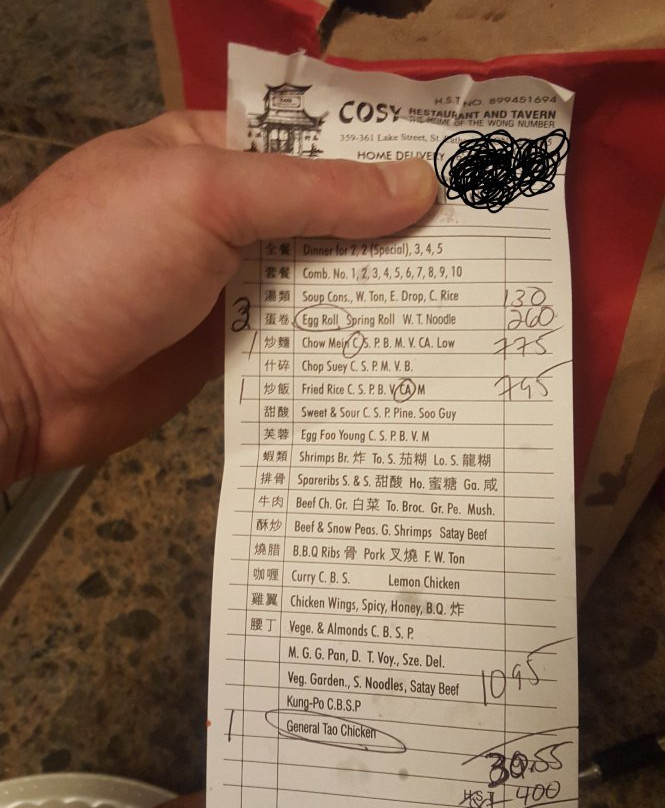 H.S.T NO. 899451694
COSY RESTAURANT AND TAVERN
THE HOME OF THE WONG NUMBER
359-361 Lake Street, St.
HOME DELIVERY
全餐 Dinner for 2, 2 (Special), 3, 4, 5
套餐 Comb. No. 1, 2, 3, 4, 5, 6, 7, 8, 9, 10
湯類 Soup Cons., W. Ton, E. Drop, C. Rice 130
蛋卷 Egg Roll Spring Roll W. T. Noodle 260
1 炒麵 Chow Mein C. S. P. B. M. V. CA. Low 775
什碎 Chop Suey C. S. P. M. V. B.
1 炒飯 Fried Rice C. S. P. B. V. CA M 795
甜酸 Sweet & Sour C. S. P. Pine. Soo Guy
芙蓉 Egg Foo Young C. S. P. B. V. M
蝦類 Shrimps Br. 炸 To. S. 茄糊 Lo. S. 龍糊
排骨 Spareribs S. & S. 甜酸 Ho. 蜜糖 Ga. 咸
牛肉 Beef Ch. Gr. 白菜 To. Broc. Gr. Pe. Mush.
酥炒 Beef & Snow Peas. G. Shrimps Satay Beef
燒腊 B.B.Q Ribs 骨 Pork 叉燒 F. W. Ton
咖喱 Curry C. B. S. Lemon Chicken
雞翼 Chicken Wings, Spicy, Honey, B.Q. 炸
腰丁 Vege. & Almonds C. B. S. P.
M. G. G. Pan, D. T. Voy., Sze. Del.
Veg. Garden., S. Noodles, Satay Beef 1095
Kung-Po C.B.S.P
1 General Tao Chicken
30.55
H.S.T 400